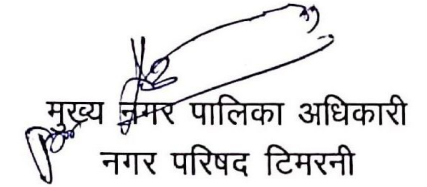 मुख्य नगर पालिका अधिकारी
नगर परिषद टिमरनी